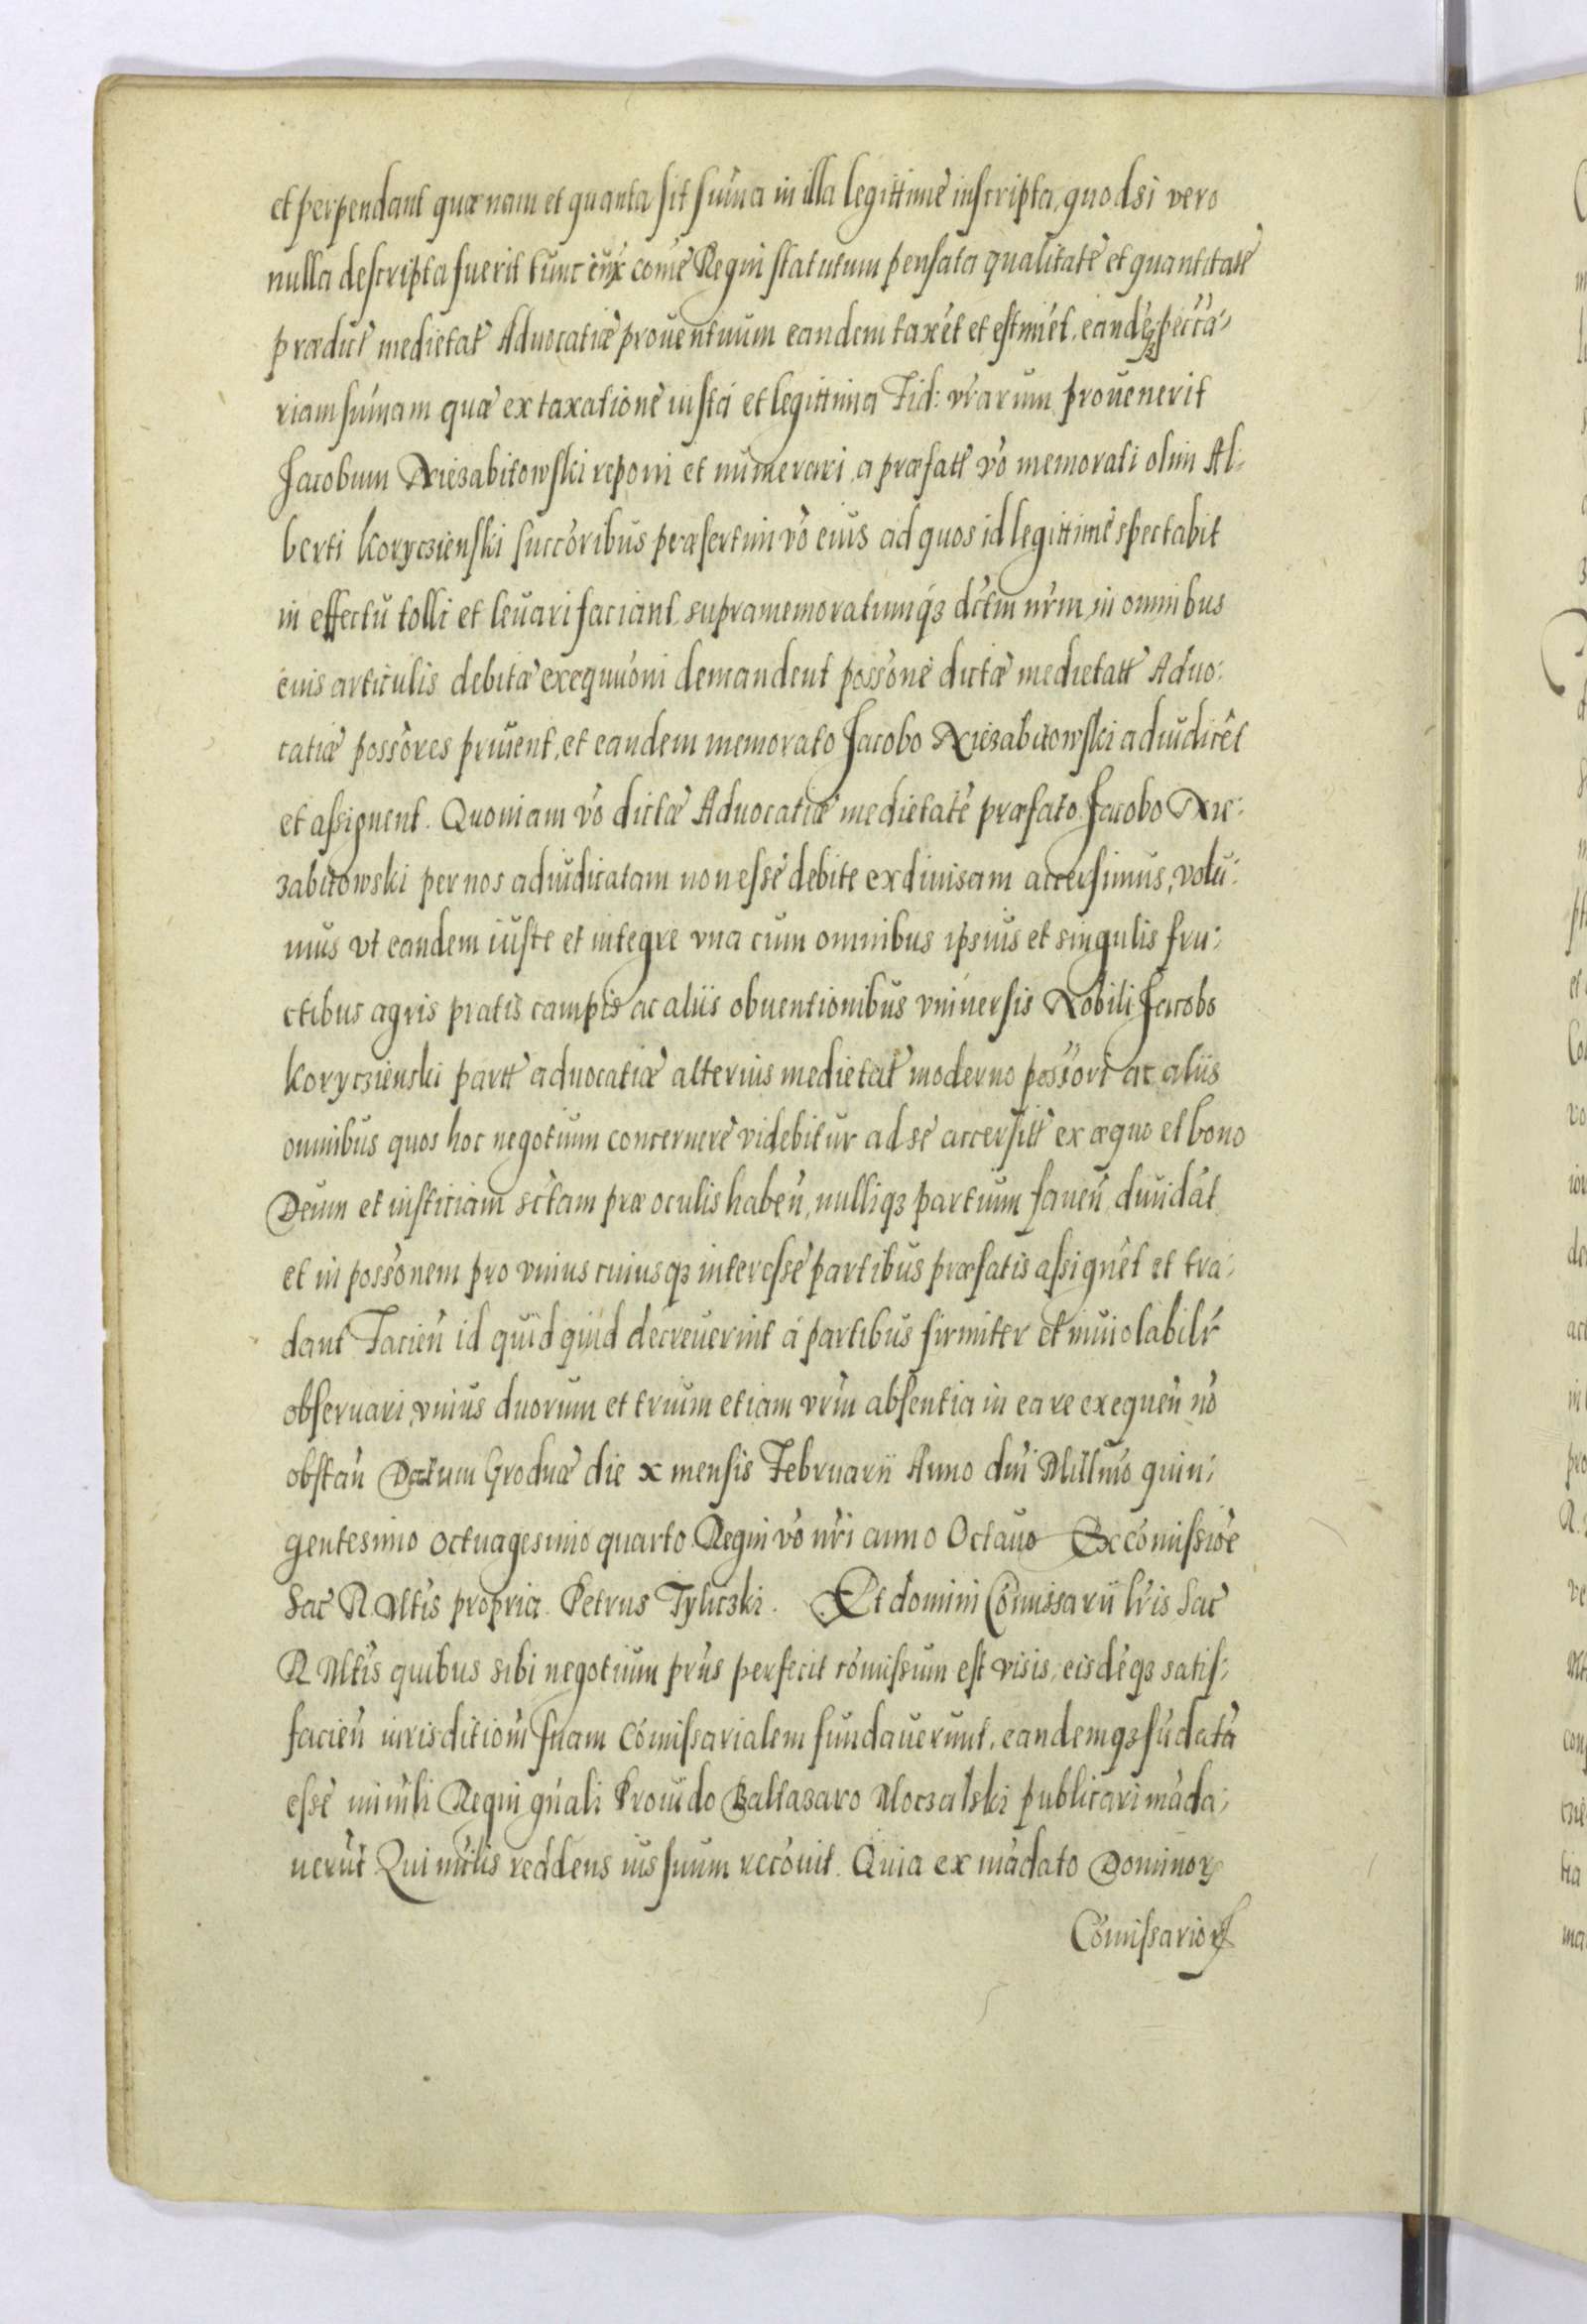 et perpendant quæ nam et quanta sit sum̃a in illa legittime inscripta, quodsi vero
nulla descripta fuerit tunc iux̃ com̃e Regni statutum pensata qualitate et quantitate
prædict medietat Advocatiæ prouentuum eandem taxẽt et estimẽt, eandẽqȝ pecca-
riam sum̃am quæ ex taxatione iusta et legittima Fid: vr̃arum prouenerit
Jacobum Niezabitowski reponi et numerari, a præfatt võ memorati olim Al-
berti Koryczienski succõribus præsertim võ eius ad quos id legittime spectabit
in effectu tolli et leuari faciant, supramemoratumqȝ dc̃tm nr̃m in omnibus
eius articulis debitæ exequũoni demandent possõne dictæ medietatt Aduo:
catiæ possõres priuent, et eandem memorato Jacobo Niezabitowski adiudicẽt
et assignent. Quoniam võ dictæ Advocatiæ medietatẽ præfato Jacobo Nie:
zabitowski per nos adiudicatam non esse debite exdiuisam accersimus, volu:
mus vt eandem iuste et integre vna cum omnibus ipsius et singulis fru:
ctibus agris pratis campis ac aliis obuentionibus vniuersis Nobili Jacobo
Koryczienski partt aduocatiæ alterius medietat moderno possõri ac aliis
omnibus quos hoc negotium concernere videbitur ad se accersitt ex æquo et bono
Deum et iusticiam sc̃tam præ oculis habeñ, nulliqȝ partium faueñ diuidãt
et in possõnem pro vnius cuiusqȝ interesse partibus præfatis assignẽt et tra:
dant Facieñ id quidquid decreuerint a partibus firmiter et inuiolabilr̃
obseruari, vnius duorum et trium etiam vr̃m absentia in ea re exequeñ nõ
obstañ Datum Grodnæ die x mensis Februarii Anno dnĩ Millm̃o quin:
gentesimo octuagesimo quarto Regni võ nr̃i anno Octauo Ex com̃issiõe
Sac R. Mt̃is propria. Petrus Tyliczki. Et domini Com̃issarii lr̃is Sac
R Mt̃is quibus sibi negotium prũs perfecit com̃issum est visis, eisdẽqȝ satis:
facieñ iurisditioñ suam Com̃issarialem fundauerunt, eandemqȝ fũdatã
esse miñli Regni gñali Prouido Baltazaro Moczalski publicari mãda:
uerũt Qui mĩlis reddens ius suum recõuit. Quia ex mãdato Dominoꝝ
Com̃issarioꝝ